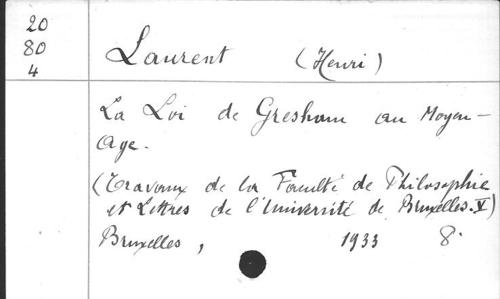 20
80
4
Laurent (Henri)
La Loi de Gresham au Moyen-
Age.
(Travaux de la Faculté de Philosophie
et Lettres de l'Université de Bruxelles. V)
Bruxelles, 1933 8°